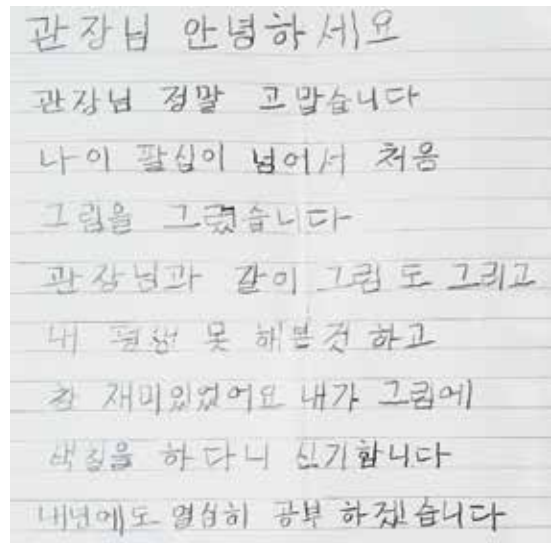 관장님 안녕하세요
관장님 정말 고맙습니다
나이 팔십이 넘어서 처음
그림을 그렸습니다
관장님과 같이 그림도 그리고
내 평생 못 해본것 하고
참 재미있었어요 내가 그림에
색칠을 하다니 신기합니다
내년에도 열심히 공부 하겠습니다